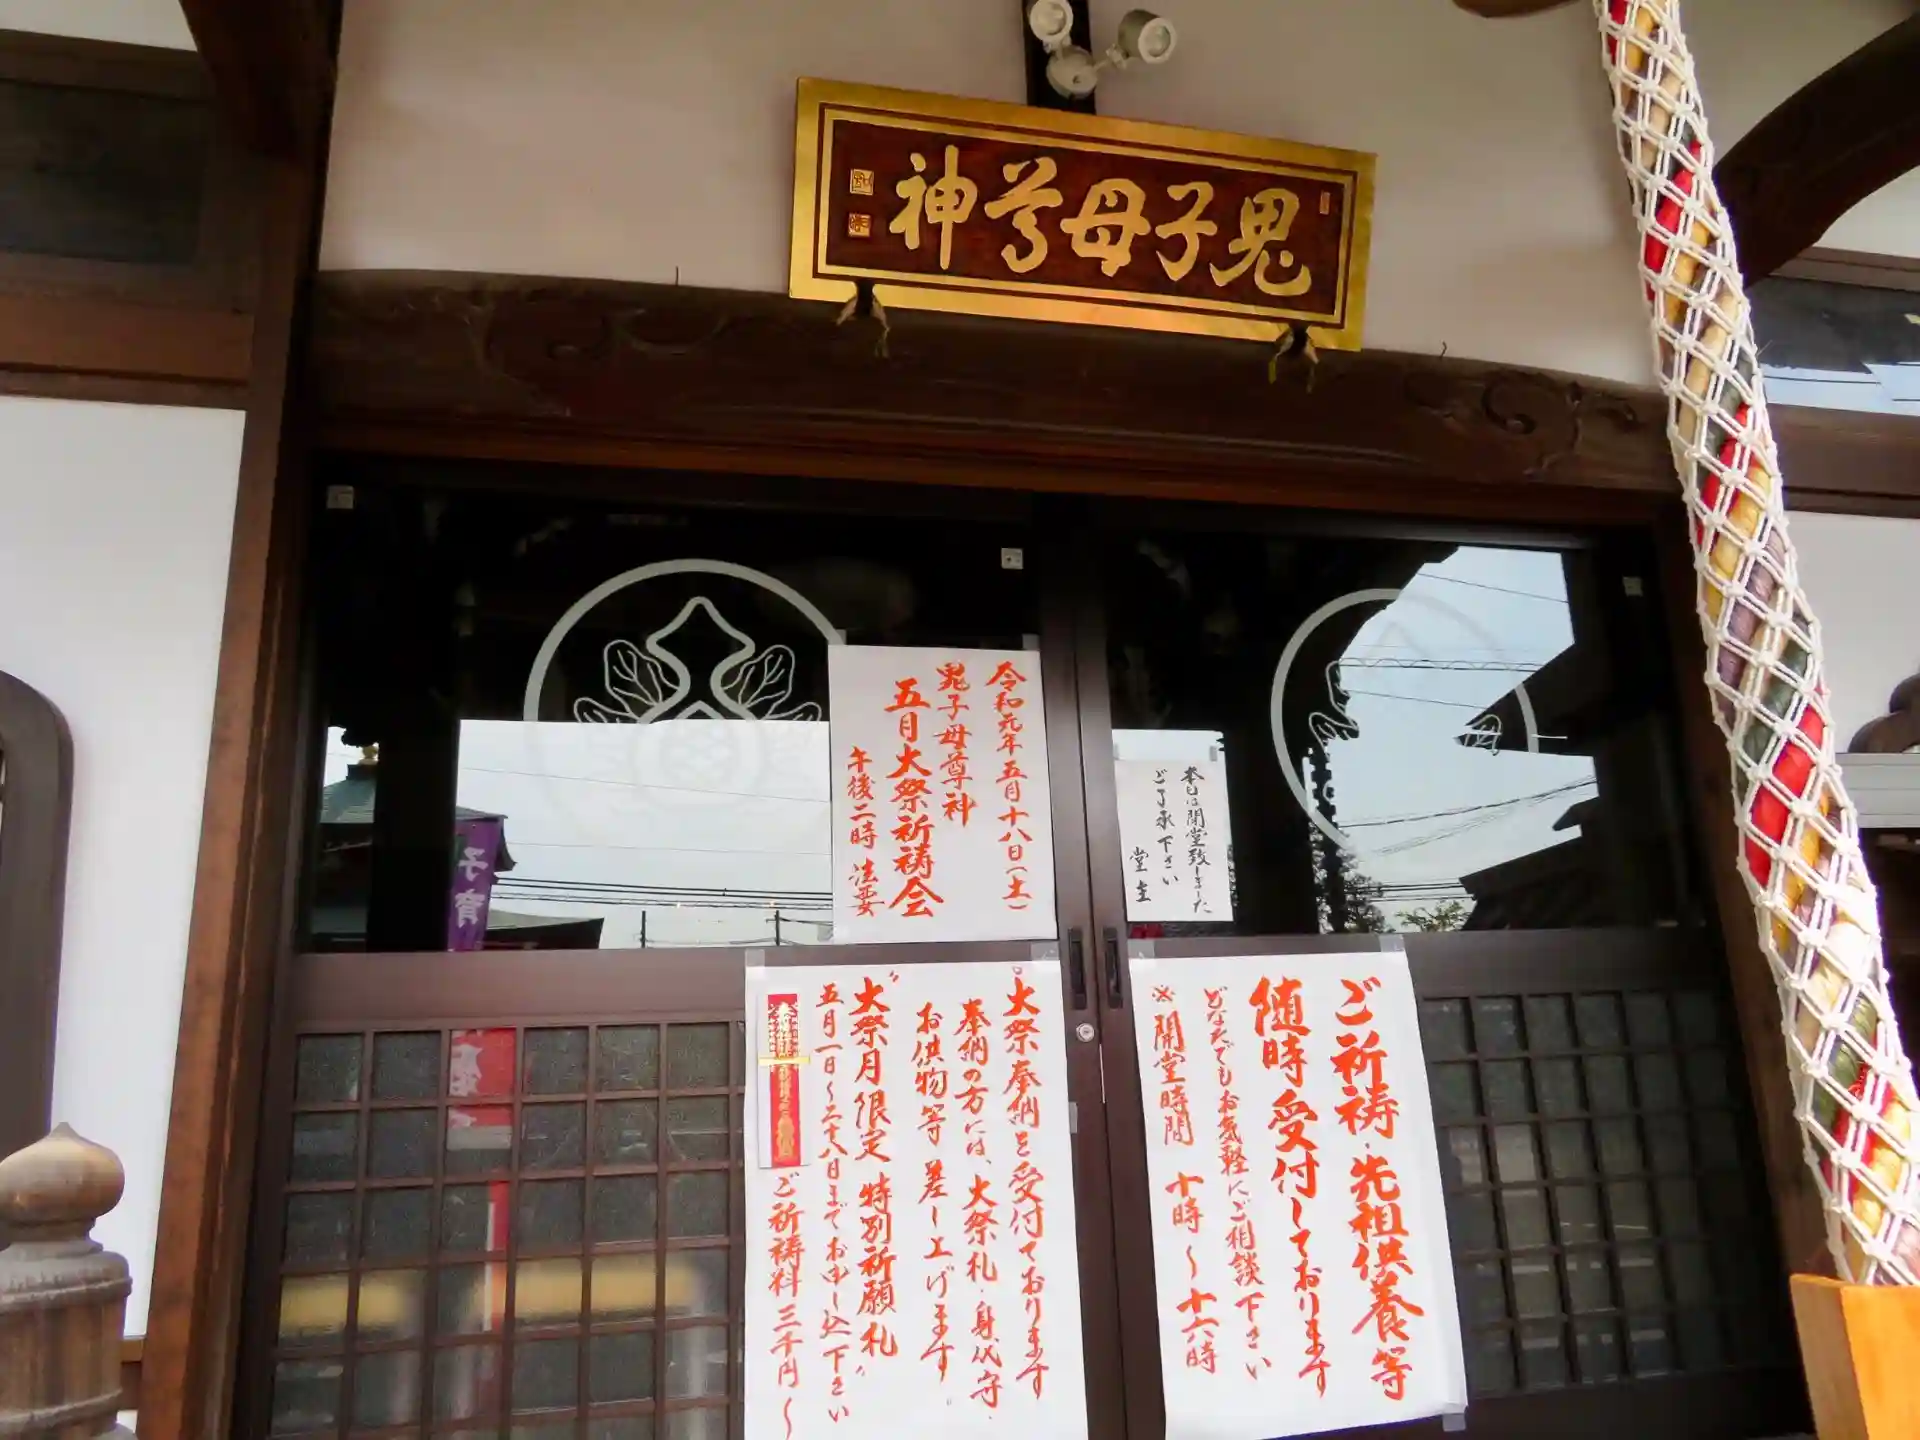 鬼子母尊神
令和元年五月十八日(土)
鬼子母尊神
五月大祭祈祷会
午後二時 法要
本日は閉堂致しました
ご了承下さい
堂主
大祭奉納を受付ております
奉納の方には、大祭札・身代守・
お供物等差し上げます。
"大祭月限定 特別祈願札"
五月一日〜二十八日までお申し込下さい
ご祈祷料 三千円〜
ご祈祷・先祖供養等
随時受付しております
どなたでもお気軽にご相談下さい
※開堂時間 十時〜十六時
子育